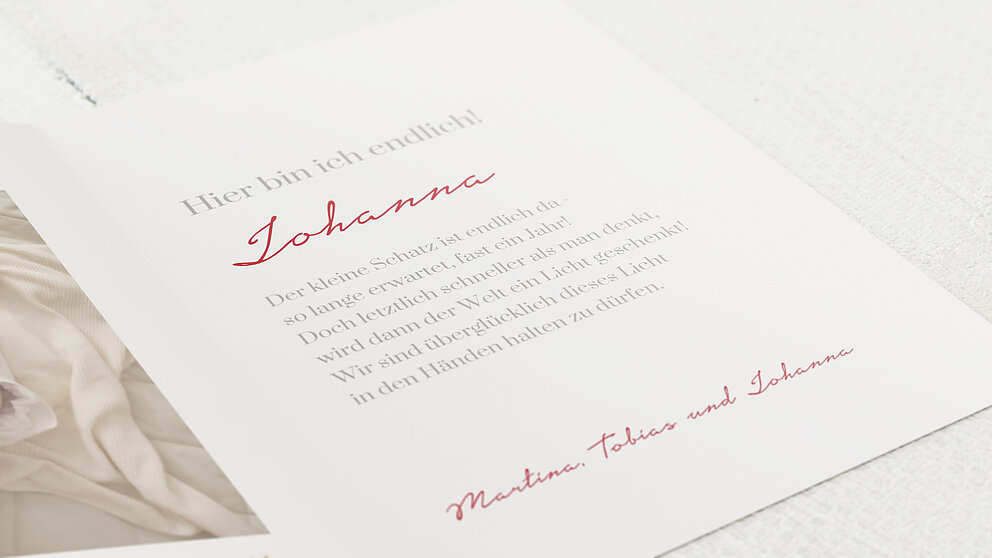 Hier bin ich endlich!
Johanna
Der kleine Schatz ist endlich da -
so lange erwartet, fast ein Jahr!
Doch letztlich schneller als man denkt,
wird dann der Welt ein Licht geschenkt!
Wir sind überglücklich dieses Licht
in den Händen halten zu dürfen.
Martina, Tobias und Johanna